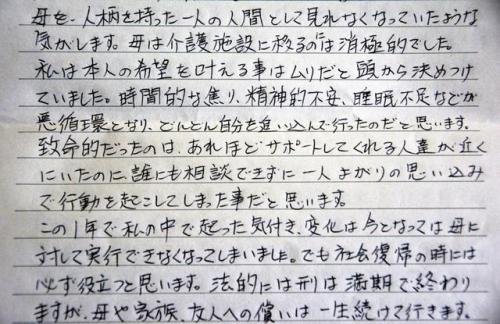 母を、人柄を持った一人の人間として見れなくなっていたような
気がします。母は介護施設に移るのには消極的でした。
私は本人の希望を叶える事はムリだと頭から決めつけ
ていました。時間的な焦り、精神的不安、睡眠不足などが
悪循環となり、どんどん自分を追い込んで行ったのだと思います。
致命的だったのは、あれほどサポートしてくれる人達が近く
にいたのに、誰にも相談できずに一人よがりの思い込み
で行動を起こしてしまった事だと思います。
この1年で私の中で起った気付き、変化は今となっては母に
対して実行できなくなってしまいました。でも社会復帰の時には
必ず役立つと思います。法的には刑は満期で終わり
ますが、母や家族、友人への償いは一生続けて行きます。